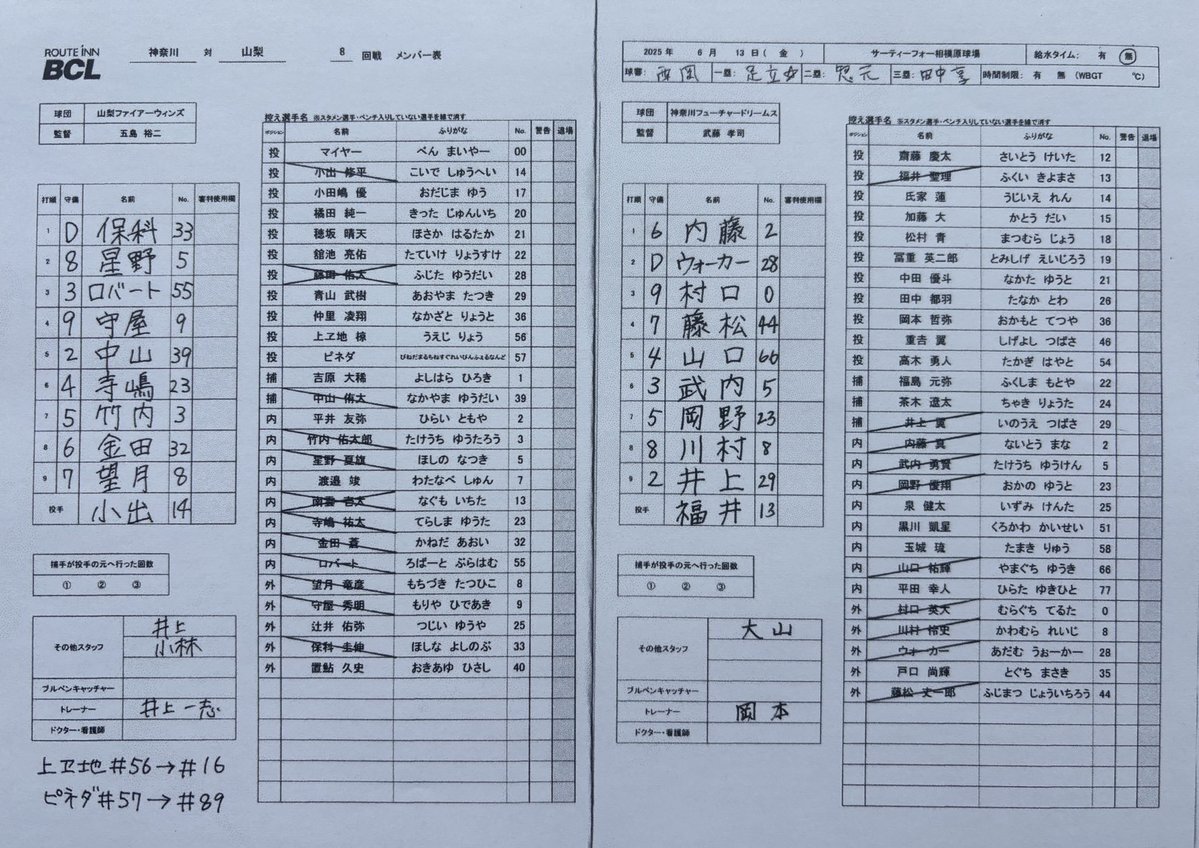 ROUTE INN
BCL
神奈川 対 山梨 8 回戦 メンバー表
球団 山梨ファイアーウィンズ
監督 五島 裕二
打順 守備 名前 No. 審判使用欄
1 D 保科 33
2 8 星野 5
3 3 ロバート 55
4 9 守屋 9
5 2 中山 39
6 4 寺嶋 23
7 5 竹内 3
8 6 金田 32
9 7 望月 8
投手 小出 14
捕手が投手の元へ行った回数
① ② ③
その他スタッフ 井上
小林
ブルペンキャッチャー
トレーナー 井上一志
ドクター・看護師
上ヱ地#56→#16
ピネダ#57→#89
控え選手名 ※スタメン選手・ベンチ入りしていない選手を線で消す
ポジション 名前 ふりがな No. 警告 退場
投 マイヤー べん まいやー 00
投 小出 修平 こいで しゅうへい 14
投 小田嶋 優 おだじま ゆう 17
投 橘田 純一 きった じゅんいち 20
投 穂坂 晴天 ほさか はるたか 21
投 舘池 亮佑 たていけ りょうすけ 22
投 藤田 佑太 ふじた ゆうだい 28
投 青山 武樹 あおやま たつき 29
投 仲里 凌翔 なかざと りょうと 36
投 上ヱ地 椋 うえじ りょう 56
投 ピネダ 57
捕 吉原 大稀 よしはら ひろき 1
捕 中山 侑太 なかやま ゆうだい 39
内 平井 友弥 ひらい ともや 2
内 竹内 佑太郎 たけうち ゆうたろう 3
内 星野 夏旗 ほしの なつき 5
内 渡邉 竣 わたなべ しゅん 7
内 南雲 壱太 なぐも いちた 13
内 寺嶋 祐太 てらしま ゆうた 23
内 金田 蒼 かねだ あおい 32
内 ロバート ろばーと ぶらはむ 55
外 望月 竜彦 もちづき たつひこ 8
外 守屋 秀明 もりや ひであき 9
外 辻井 佑弥 つじい ゆうや 25
外 保科 圭伸 ほしな よしのぶ 33
外 置鮎 久史 おきあゆ ひさし 40
2025 年 6 月 13 日 ( 金 ) サーティーフォー相模原球場 給水タイム: 有 無
球審: 西岡 一塁: 足立 二塁: 三塁: 田中 時間制限: 有 無 (WBGT ℃)
球団 神奈川フューチャードリームス
監督 武藤 孝司
打順 守備 名前 No. 審判使用欄
1 6 内藤 2
2 D ウォーカー 28
3 9 村口 0
4 7 藤松 44
5 4 山口 66
6 3 武内 5
7 5 岡野 23
8 8 川村 8
9 2 井上 29
投手 福井 13
捕手が投手の元へ行った回数
① ② ③
その他スタッフ 大山
ブルペンキャッチャー
トレーナー 岡本
ドクター・看護師
控え選手名 ※スタメン選手・ベンチ入りしていない選手を線で消す
ポジション 名前 ふりがな No. 警告 退場
投 齋藤 慶太 さいとう けいた 12
投 福井 聖理 ふくい きよまさ 13
投 氏家 蓮 うじいえ れん 14
投 加藤 大 かとう だい 15
投 松村 青 まつむら じょう 18
投 冨重 英二郎 とみしげ えいじろう 19
投 中田 優斗 なかた ゆうと 21
投 田中 都羽 たなか とわ 26
投 岡本 哲弥 おかもと てつや 36
投 重吉 翼 しげよし つばさ 46
投 高木 勇人 たかぎ はやと 54
捕 福島 元弥 ふくしま もとや 22
捕 茶木 遼太 ちゃき りょうた 24
捕 井上 翼 いのうえ つばさ 29
内 内藤 真 ないとう まな 2
内 武内 勇賢 たけうち ゆうけん 5
内 岡野 優翔 おかの ゆうと 23
内 泉 健太 いずみ けんた 25
内 黒川 凱星 くろかわ かいせい 51
内 玉城 琉 たまき りゅう 58
内 山口 祐輝 やまぐち ゆうき 66
内 平田 幸人 ひらた ゆきひと 77
外 村口 英大 むらぐち てるた 0
外 川村 怜史 かわむら れいじ 8
外 ウォーカー あだむ うぉーかー 28
外 戸口 尚輝 とぐち まさき 35
外 藤松 丈一郎 ふじまつ じょういちろう 44